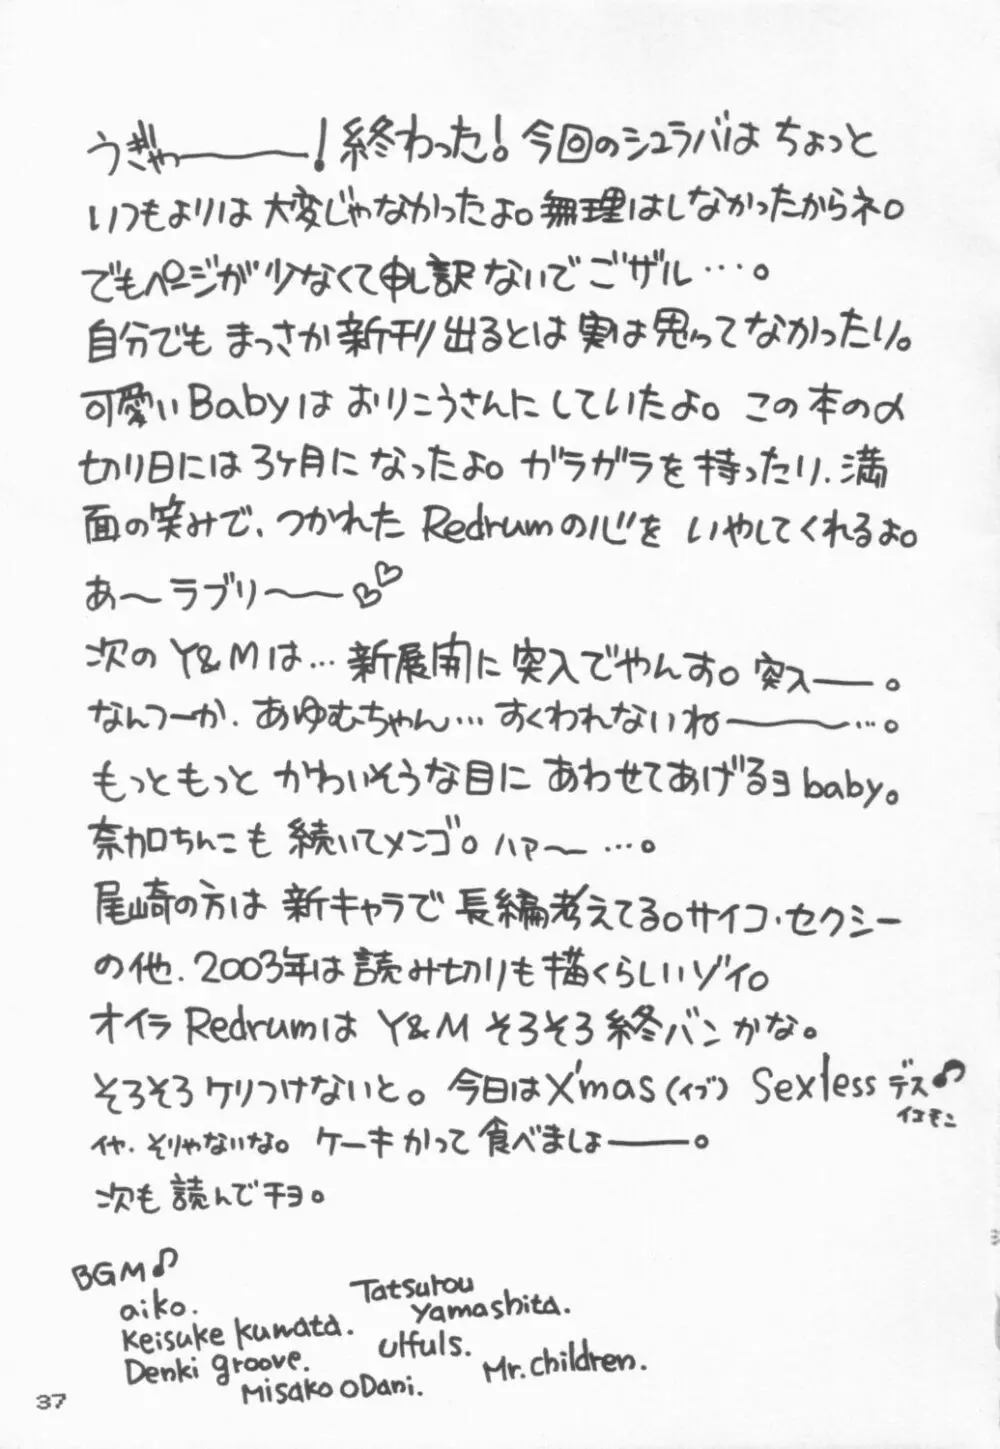 うぎゃーーー！終わった！今回のシュラバは ちょっと
いつもよりは 大変じゃなかったよ。無理はしなかったからネ。
でもページが 少なくて申し訳ないで ござル…。
自分でも まっさか新刊 出るとは 実は思ってなかったり。
可愛いBabyは おりこうさんに していたよ。この本の〆
切り日には3ヶ月に なったよ。ガラガラを 持ったり、満
面の笑みで、つかれた Redrumの心を いやしてくれるよ。
あ〜ラブリ〜〜♡♡
次の Y&Mは… 新展開に 突入でやんす。突入ーー。
なんつーか、あゆむちゃん… すくわれないね〜〜…。
もっともっと かわいそうな目に あわせてあげるヨ baby。
奈加ちんこも 続いてメンゴ。ハァ〜…。
尾崎の方は 新キャラで 長編考えてる。サイコ・セクシー
の他、2003年は 読み切りも 描くらしいゾイ。
オイラ Redrumは Y&M そろそろ 終バンかな。
そろそろ ケリつけないと。今日は X'mas(イブ) Sexlessデス♪
イエモン
イヤ、そりゃないな。ケーキかって 食べましょーー。
次も 読んでチョ。
BGM♪
aiko.
Tatsurou
Yamashita.
Keisuke Kuwata.
Ulfuls.
Denki groove.
Mr.children.
Misako ODani.
37